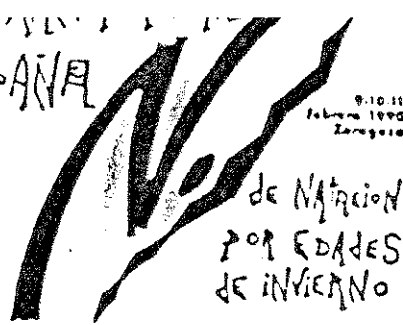 PAÑA
9.10.11
febrero 1990
Zaragoza
de NATACION
POR EDADES
dE iNViERNO